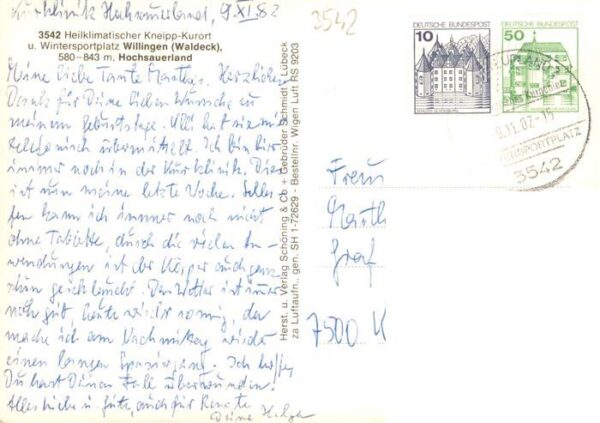 Kurklinik Hochsauerland, 9.XI.82
3542 Heilklimatischer Kneipp-Kurort
u. Wintersportplatz Willingen (Waldeck),
580–843 m, Hochsauerland
Meine liebe Tante Marthel. Herzlichen
Dank für Deine lieben Wünsche zu
meinem Geburtstage. Ulli hat sie mir
telefonisch übermittelt. Ich bin hier
immer noch in der Kurklinik. Dies
ist nun meine letzte Woche. Schla-
fen kann ich immer noch nicht
ohne Tablette, durch die vielen An-
wendungen ist der Körper auch ganz
schön geschlaucht. Das Wetter ist immer
noch gut, heute wieder sonnig, da
mache ich am Nachmittag wieder
einen langen Spaziergang. Ich hoffe,
Du hast Deinen Fall überwunden.
Alles Liebe u. Gute, auch für Renate
Deine Helga
Herst. u. Verlag Schöning & Co + Gebrüder Schmidt · Lübeck
za Luftaufn., gen. SH 1-72629 - Bestellnr. Wigen Luft RS 9203
3542
DEUTSCHE BUNDESPOST
10
DEUTSCHE BUNDESPOST
50
3542
Frau
Marth
Graf
7500 K